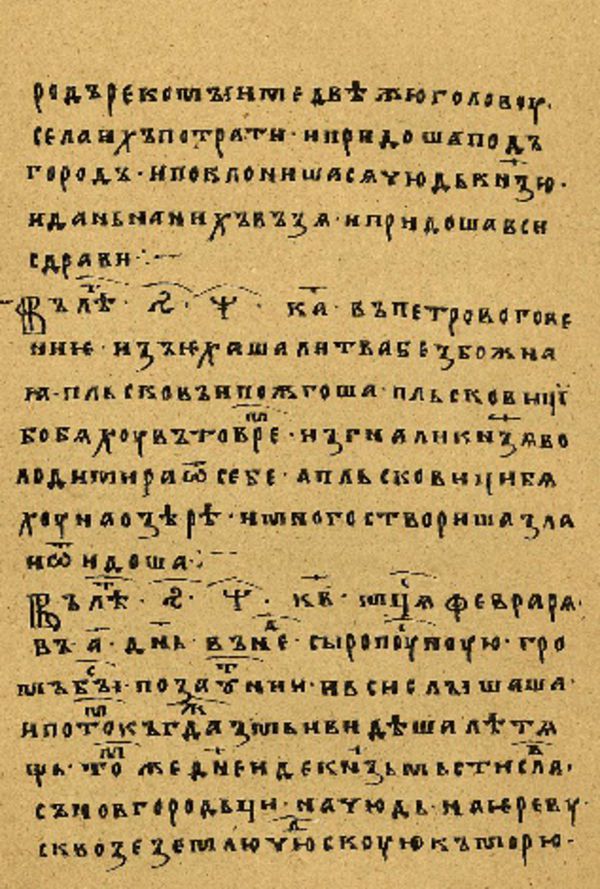 родърекомъимедвѣжюголовоу·
селаихъпотрати·ипридошаподъ
городъ·ипоклонишасячюдькнѧзю·
иданьнанихъвъзя·ипридошавси
сдрави⁘
Въ лѣт҃· ҂ѕ҃· х҃· к҃а· въпетровогове
ние·изъѣхашалитвабезбожна
ꙗ·пльсковъипожгоша·пльсковици
бобяхоувътовре·изгналикнѧзяво
лодимираѿсебе·апльсковицибя
хоунаозѣрѣ·имногостворишазла
иѿидоша⁘
Въ лѣт҃· ҂ѕ҃· х҃· к҃в· мц҃я феврарѧ·
въ·а҃·днь·въне·сыропоустноую·гро
мъбы·позаутрнии·ивсислышаша·
ипотомъкъгдажьзмьивидѣшалѣтя
щь·томжеднеидекнѧзьмьстисла·
съновгородьци·начюдь·наереву·
сквозеземлючюдскоую·къморю·